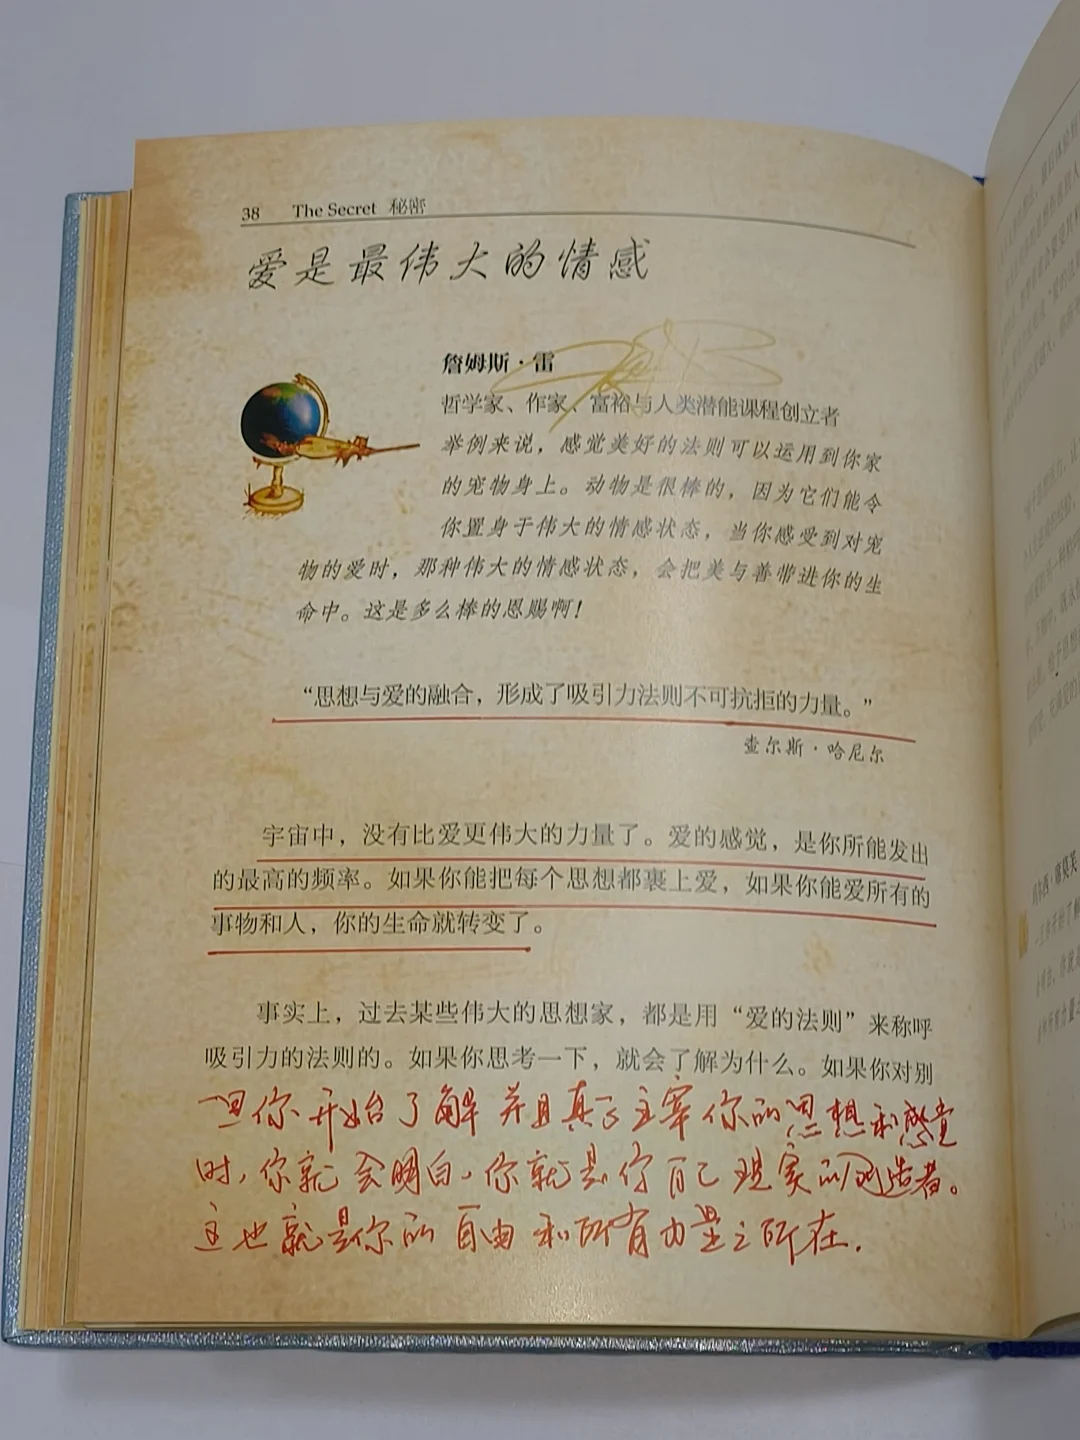 38 The Secret 秘密
爱是最伟大的情感
詹姆斯·雷
哲学家、作家、富裕与人类潜能课程创立者
举例来说，感觉美好的法则可以运用到你家
的宠物身上。动物是很棒的，因为它们能令
你置身于伟大的情感状态，当你感受到对宠
物的爱时，那种伟大的情感状态，会把美与善带进你的生
命中。这是多么棒的恩赐啊！
“思想与爱的融合，形成了吸引力法则不可抗拒的力量。”
查尔斯·哈尼尔
宇宙中，没有比爱更伟大的力量了。爱的感觉，是你所能发出
的最高的频率。如果你能把每个思想都裹上爱，如果你能爱所有的
事物和人，你的生命就转变了。
事实上，过去某些伟大的思想家，都是用“爱的法则”来称呼
吸引力的法则的。如果你思考一下，就会了解为什么。如果你对别
一旦你开始了解并且真正主宰你的思想和感觉
时，你就会明白，你就是你自己现实的创造者。
这也就是你的自由和所有力量之所在.